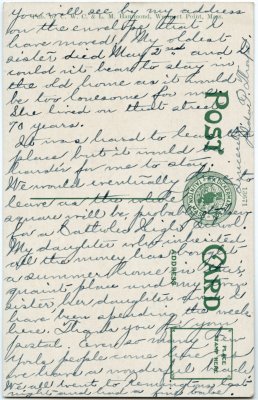 Pub. by C. W. C. & L. M. Hammond, Westport Point, Mass.
You'll see by my address
on the envelope that I
have moved. My oldest
sister died May 2nd and I
could n't bear to stay in
the old home as it would
be too lonesome for me.
She lived on that street
70 years.
It was hard to leave the
place but it would
harder for me to stay.
We would eventually to
leave as the whole
square will be probably
for a Catholic High
My daughter who inherited
all the money has
a summer home in this
quaint place and my
sister her daughter and I
have been spending the week
here. Thank you for your
postal. Ever so many New
York people come here
We have a wonderful beach
We all went to last
night and had a
POST CARD
ADDRESS
PLACE STAMP HERE